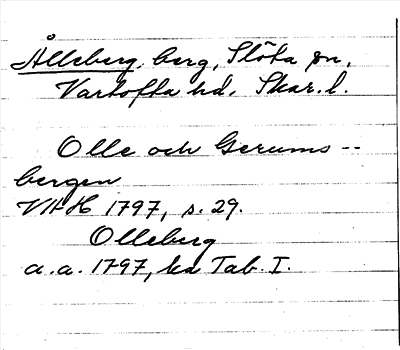 Ålleberg, berg, Slöta sn,
Vartofta hd, Skar. l.
Olle och Gerums --
bergen
VHH 1797, s. 29.
Olleberg
a. a. 1797, Tab. I.